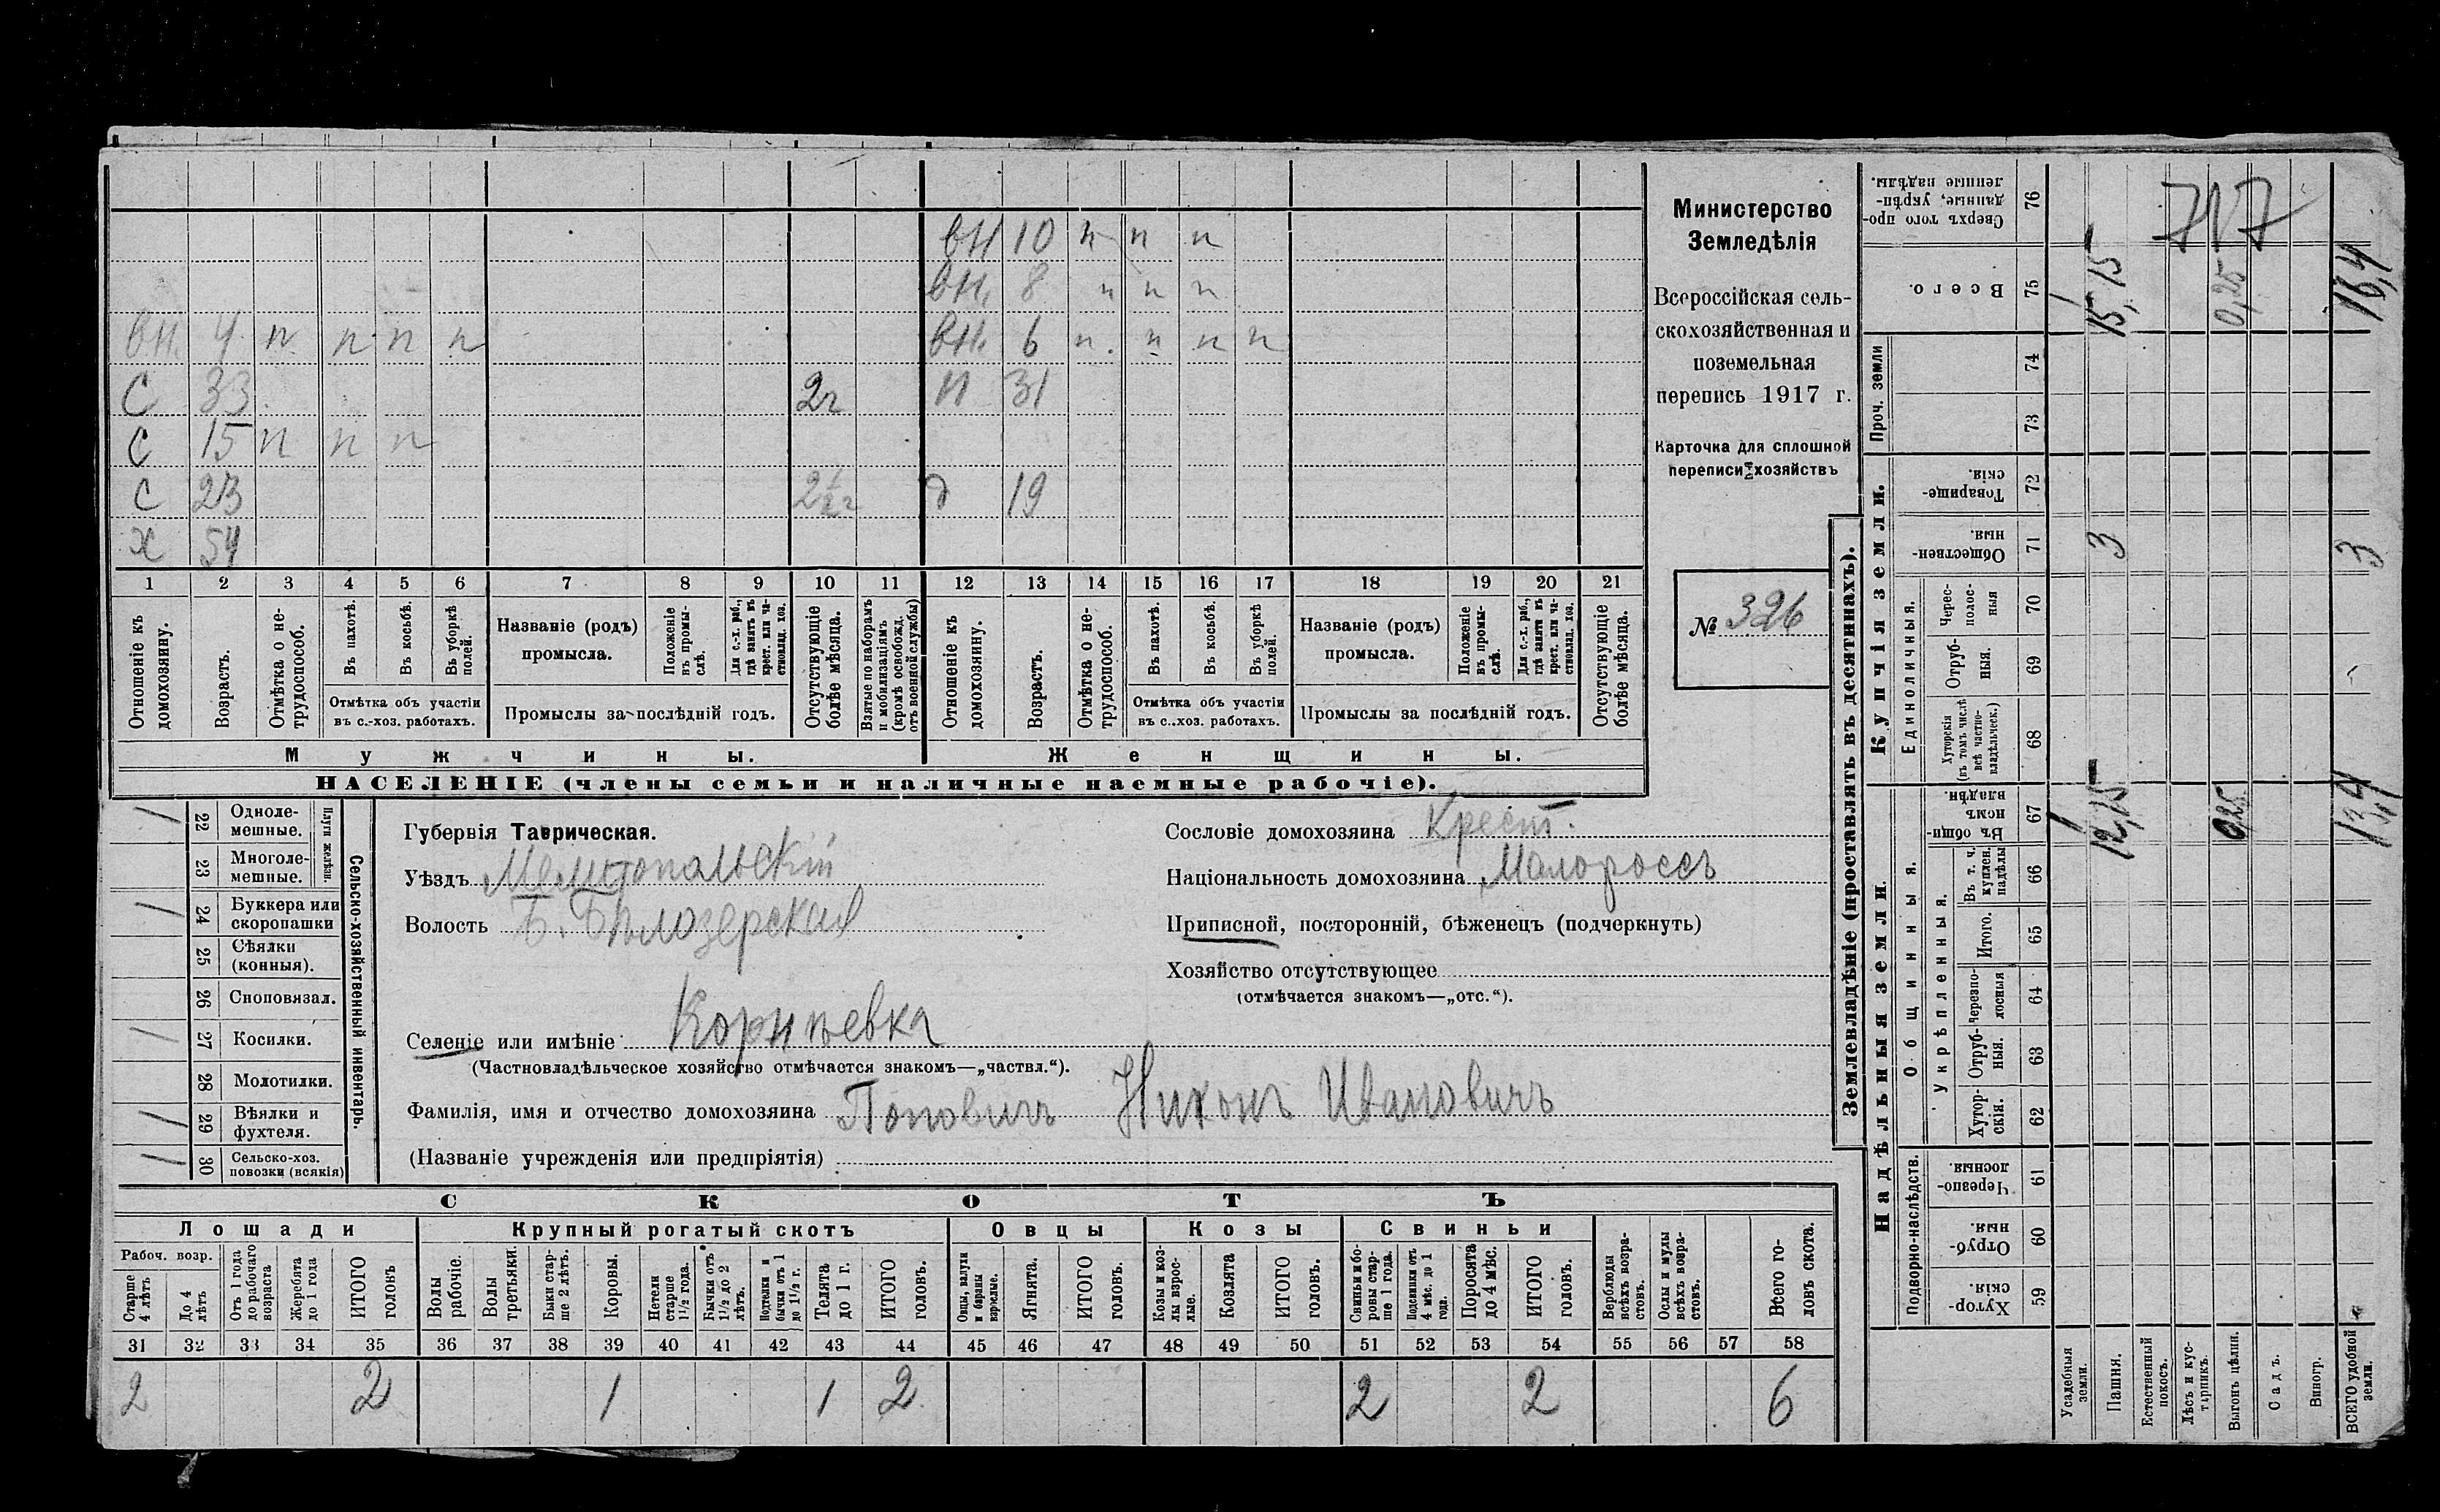 вн 10 п п п
вн. 8 п п п
вн. 4 п п п п вн. 6 п. п п п
С 33 2г Н 31
С 15 п п п
С 23 2½ г д 19
х 54
1 2 3 4 5 6 7 8 9 10 11 12 13 14 15 16 17 18 19 20 21
Отношеніе къ домохозяину.
Возрастъ.
Отмѣтка о не-трудоспособ.
Въ пахотѣ.
Въ косьбѣ.
Въ уборкѣ полей.
Отмѣтка объ участіи
въ с.-хоз. работахъ.
Названіе (родъ)
промысла.
Положеніе въ промы-слѣ.
Для с.-х. раб., гдѣ занятъ въ крест. или ча-стновлад. хоз.
Промыслы за послѣдній годъ.
Отсутствующіе болѣе мѣсяца.
Взятые по наборамъ и мобилизаціямъ (кромѣ освобожд. отъ военной службы)
Отношеніе къ домохозяину.
Возрастъ.
Отмѣтка о не-трудоспособ.
Въ пахотѣ.
Въ косьбѣ.
Въ уборкѣ полей.
Отмѣтка объ участіи
въ с.-хоз. работахъ.
Названіе (родъ)
промысла.
Положеніе въ промы-слѣ.
Для с.-х. раб., гдѣ занята въ крест. или ча-стновлад. хоз.
Промыслы за послѣдній годъ.
Отсутствующіе болѣе мѣсяца.
Мужчины. Женщины.
НАСЕЛЕНІЕ (члены семьи и наличные наемные рабочіе).
Министерство
Земледѣлія
Всероссійская сель-
скохозяйственная и
поземельная
перепись 1917 г.
Карточка для сплошной
переписи хозяйствъ
№ 326
Сельско-хозяйственный инвентарь.
Плуги желѣзн.
/ 22 Одноле-мешные.
23 Многоле-мешные.
/ 24 Буккера или скоропашки
25 Сѣялки (конныя).
26 Сноповязал.
/ 27 Косилки.
28 Молотилки.
/ 29 Вѣялки и фухтеля.
/ 30 Сельско-хоз. повозки (всякія)
Губернія Таврическая.
Уѣздъ Мелитопольскій
Волость Б. Бѣлозерская
Селеніе или имѣніе Корнѣевка
(Частновладѣльческое хозяйство отмѣчается знакомъ—„частвл.“).
Фамилія, имя и отчество домохозяина Поповичъ Никонъ Ивановичъ
(Названіе учрежденія или предпріятія)
Сословіе домохозяина Крест.
Національность домохозяина Малороссъ
Приписной, посторонній, бѣженецъ (подчеркнуть)
Хозяйство отсутствующее
(отмѣчается знакомъ—„отс.“).
СКОТЪ
Лошади Крупный рогатый скотъ Овцы Козы Свиньи
Рабоч. возр.
Старше 4 лѣтъ
До 4 лѣтъ
Отъ 1 года до рабочаго возраста
Жеребята до 1 года
ИТОГО головъ
Волы рабочіе.
Волы третьяки.
Быки стар-ше 2 лѣтъ.
Коровы.
Нетели старше 1½ года.
Бычки отъ 1½ до 2 лѣтъ.
Подтелки и бычки отъ 1 до 1½ г.
Телята до 1 г.
ИТОГО головъ.
Овцы, валухи и бараны взрослые.
Ягнята.
ИТОГО головъ.
Козы и коз-лы взрос-лые.
Козлята
ИТОГО головъ.
Свиньи и бо-ровы стар-ше 1 года.
Подсвинки отъ 4 мѣс. до 1 года.
Поросята до 4 мѣс.
ИТОГО головъ.
Верблюды всѣхъ возра-стовъ.
Ослы и мулы всѣхъ возра-стовъ.
Всего го-ловъ скота.
31 32 33 34 35 36 37 38 39 40 41 42 43 44 45 46 47 48 49 50 51 52 53 54 55 56 57 58
2 2 1 1 2 2 2 6
Землевладѣніе (проставлять въ десятинахъ).
Надѣльныя земли. Купчія земли. Проч. земли
Подворно-наслѣдств.
Общинныя.
Укрѣпленныя.
Единоличныя.
Хутор-скія. 59
Отруб-ныя. 60
Черезпо-лосныя. 61
Хутор-скія. 62
Отруб-ныя. 63
Черезпо-лосныя 64
Итого. 65
Въ т. ч. куплен. надѣлы 66
Въ общин-номъ владѣн. 67
Хуторскія (въ томъ числѣ всѣ частно-владѣльческ.) 68
Отруб-ныя. 69
Черес-полос-ныя 70
Обществен-ныя. 71
Товарище-скія. 72
73
74
Всего. 75
Сверхъ того про-данные, укрѣп-ленные надѣлы. 76
Усадебныя земли.
Пашня. 12,15 3 15,15
Естественный покосъ.
Лѣсъ и кус-тарникъ.
Выгонъ цѣлин. 0,25 0,25
Садъ.
Виногр.
ВСЕГО удобной земли. 13,4 3 16,4